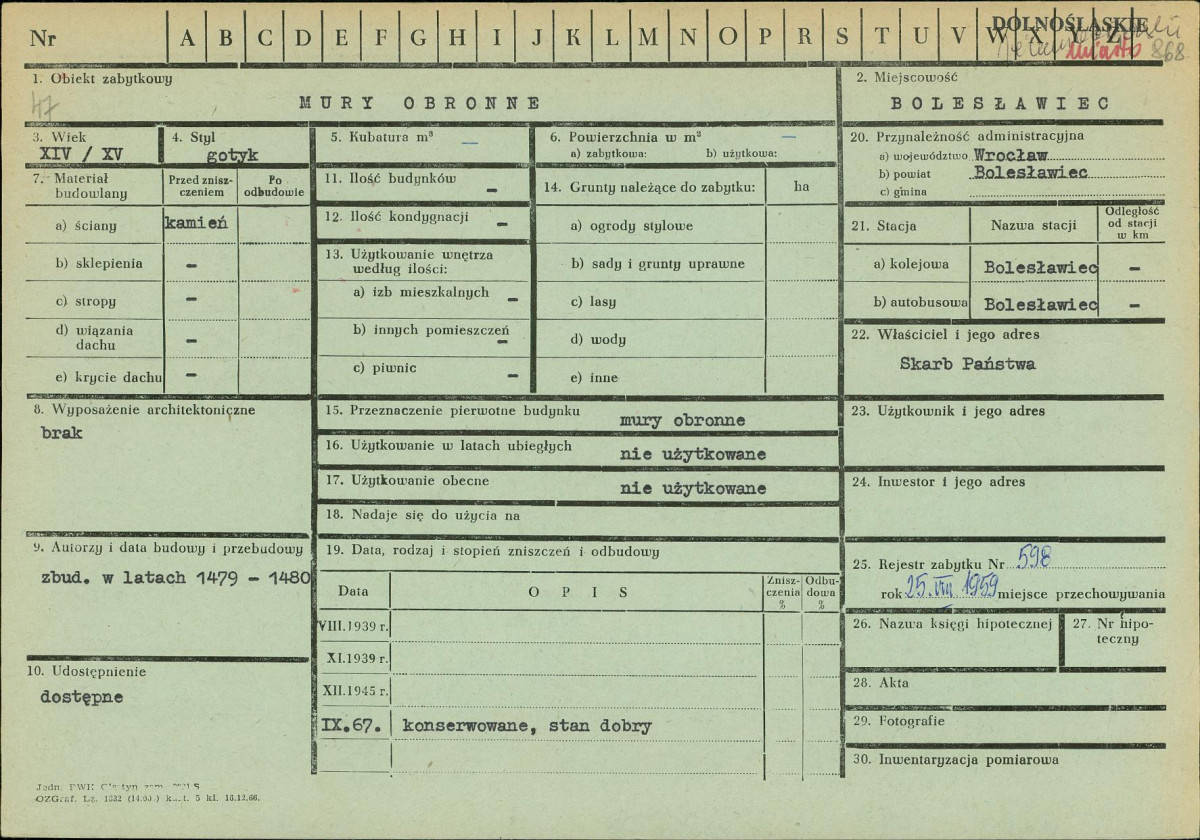 Nr A B C D E F G H I J K L M N O P R S T U V W X Y Z
DOLNOŚLĄSKIE
miasto 868
1. Obiekt zabytkowy
47
MURY OBRONNE
2. Miejscowość
BOLESŁAWIEC
3. Wiek
XIV / XV
4. Styl
gotyk
5. Kubatura m³ —
6. Powierzchnia w m² —
a) zabytkowa: b) użytkowa:
20. Przynależność administracyjna
a) województwo Wrocław
b) powiat Bolesławiec
c) gmina
7. Materiał budowlany
Przed zniszczeniem
Po odbudowie
a) ściany kamień
b) sklepienia –
c) stropy –
d) wiązania dachu –
e) krycie dachu –
11. Ilość budynków –
12. Ilość kondygnacji –
13. Użytkowanie wnętrza
według ilości:
a) izb mieszkalnych –
b) innych pomieszczeń –
c) piwnic –
14. Grunty należące do zabytku: ha
a) ogrody stylowe
b) sady i grunty uprawne
c) lasy
d) wody
e) inne
21. Stacja Nazwa stacji Odległość od stacji w km
a) kolejowa Bolesławiec –
b) autobusowa Bolesławiec –
22. Właściciel i jego adres
Skarb Państwa
8. Wyposażenie architektoniczne
brak
15. Przeznaczenie pierwotne budynku mury obronne
16. Użytkowanie w latach ubiegłych nie użytkowane
17. Użytkowanie obecne nie użytkowane
18. Nadaje się do użycia na
23. Użytkownik i jego adres
24. Inwestor i jego adres
9. Autorzy i data budowy i przebudowy
zbud. w latach 1479 – 1480
19. Data, rodzaj i stopień zniszczeń i odbudowy
Data OPIS Zniszczenia % Odbudowa %
VIII.1939 r.
XI.1939 r.
XII.1945 r.
IX.67. konserwowane, stan dobry
25. Rejestr zabytku Nr 598
rok 25.VII 1959 miejsce przechowywania
26. Nazwa księgi hipotecznej
27. Nr hipoteczny
10. Udostępnienie
dostępne
28. Akta
29. Fotografie
30. Inwentaryzacja pomiarowa
OZGraf. Lz. 1332 kl. 16.12.66.